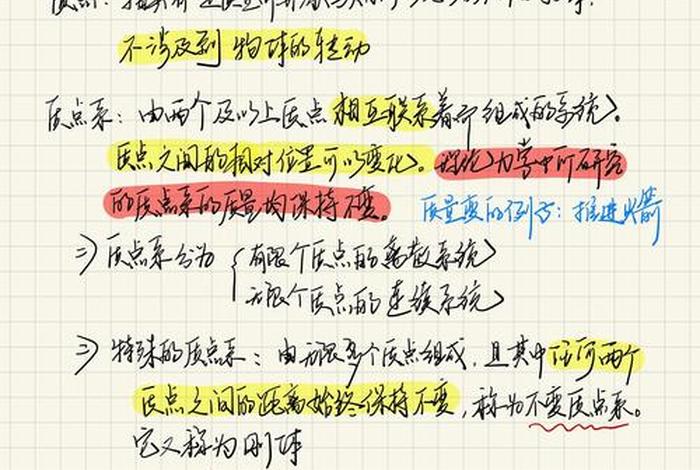 质点：
不涉及到 物体的转动
质点系：由两个及以上质点 相互联系着而组成的系统。
质点之间的相对位置可以变化。理论力学中所研究
的质点系的质量均保持不变。 质量变的例子：推进火箭
=> 质点系分为 { 有限个质点的离散系统
无限个质点的连续系统
=> 特殊的质点系：由无限多个质点组成，且其中任何两个
质点之间的距离始终保持不变，称为不变质点系。
它又称为刚体